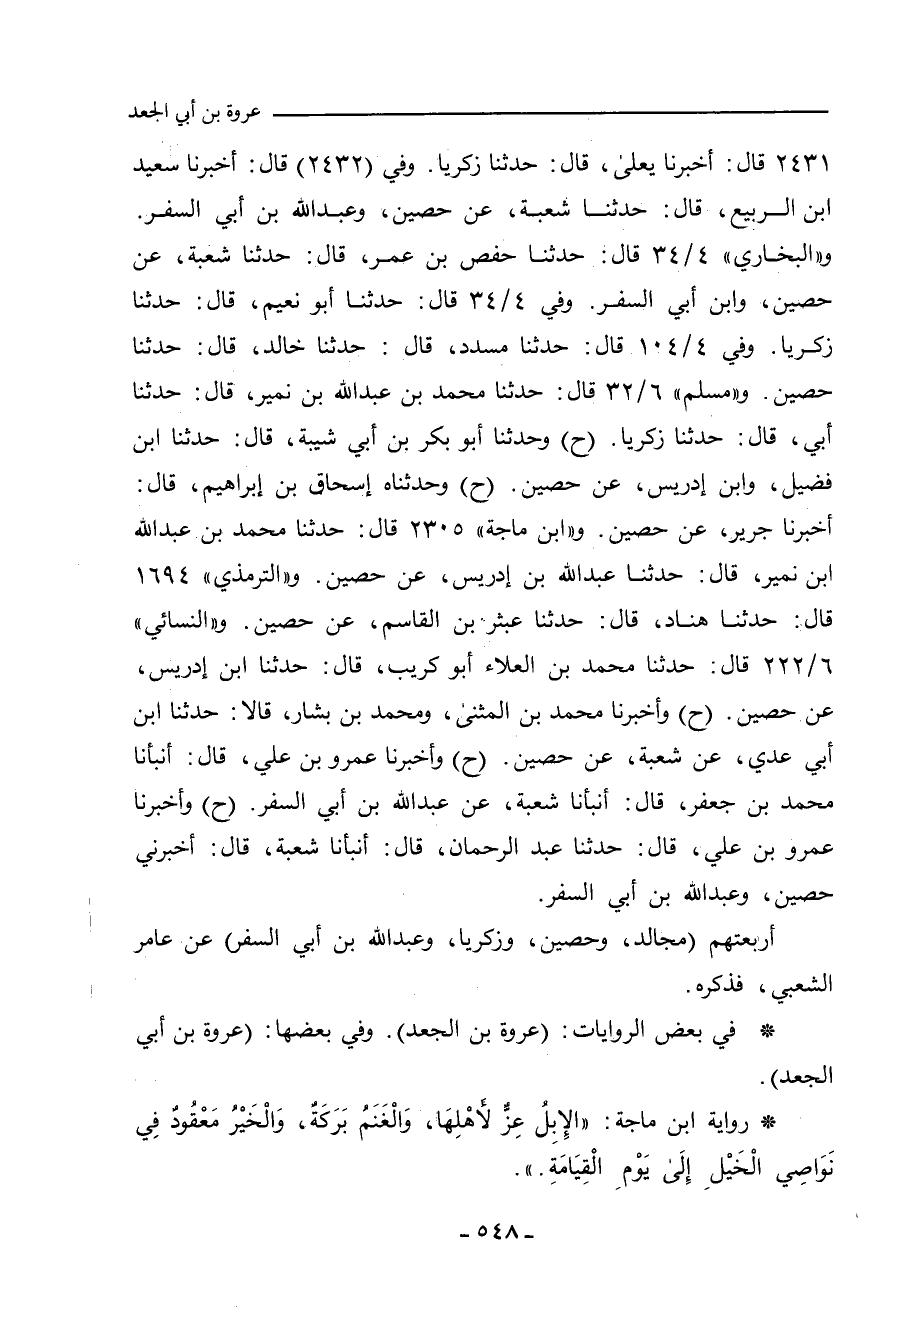 عروة بن أبي الجعد
٢٤٣١ قال: أخبرنا يعلىٰ، قال: حدثنا زكريا. وفي (٢٤٣٢) قال: أخبرنا سعيد
ابن الربيع، قال: حدثنا شعبة، عن حصين، وعبدالله بن أبي السفر.
و«البخاري» ٣٤/٤ قال: حدثنا حفص بن عمر، قال: حدثنا شعبة، عن
حصين، وابن أبي السفر. وفي ٣٤/٤ قال: حدثنا أبو نعيم، قال: حدثنا
زكريا. وفي ١٠٤/٤ قال: حدثنا مسدد، قال : حدثنا خالد، قال: حدثنا
حصين. و«مسلم» ٣٢/٦ قال: حدثنا محمد بن عبدالله بن نمير، قال: حدثنا
أبي، قال: حدثنا زكريا. (ح) وحدثنا أبو بكر بن أبي شيبة، قال: حدثنا ابن
فضيل، وابن إدريس، عن حصين. (ح) وحدثناه إسحاق بن إبراهيم، قال:
أخبرنا جرير، عن حصين. و«ابن ماجة» ٢٣٠٥ قال: حدثنا محمد بن عبدالله
ابن نمير، قال: حدثنا عبدالله بن إدريس، عن حصين. و«الترمذي» ١٦٩٤
قال: حدثنا هناد، قال: حدثنا عبثر بن القاسم، عن حصين. و«النسائي»
٢٢٢/٦ قال: حدثنا محمد بن العلاء أبو كريب، قال: حدثنا ابن إدريس،
عن حصين. (ح) وأخبرنا محمد بن المثنىٰ، ومحمد بن بشار، قالا: حدثنا ابن
أبي عدي، عن شعبة، عن حصين. (ح) وأخبرنا عمرو بن علي، قال: أنبأنا
محمد بن جعفر، قال: أنبأنا شعبة، عن عبدالله بن أبي السفر. (ح) وأخبرنا
عمرو بن علي، قال: حدثنا عبد الرحمان، قال: أنبأنا شعبة، قال: أخبرني
حصين، وعبدالله بن أبي السفر.
أربعتهم (مجالد، وحصين، وزكريا، وعبدالله بن أبي السفر) عن عامر
الشعبي، فذكره.
* في بعض الروايات: (عروة بن الجعد). وفي بعضها: (عروة بن أبي
الجعد).
* رواية ابن ماجة: «الإِبِلُ عِزٌّ لأَهْلِهَا، وَالْغَنَمُ بَرَكَةٌ، وَالْخَيْرُ مَعْقُودٌ فِي
نَوَاصِي الْخَيْلِ إِلَىٰ يَوْمِ الْقِيَامَةِ.».
- ٥٤٨ -